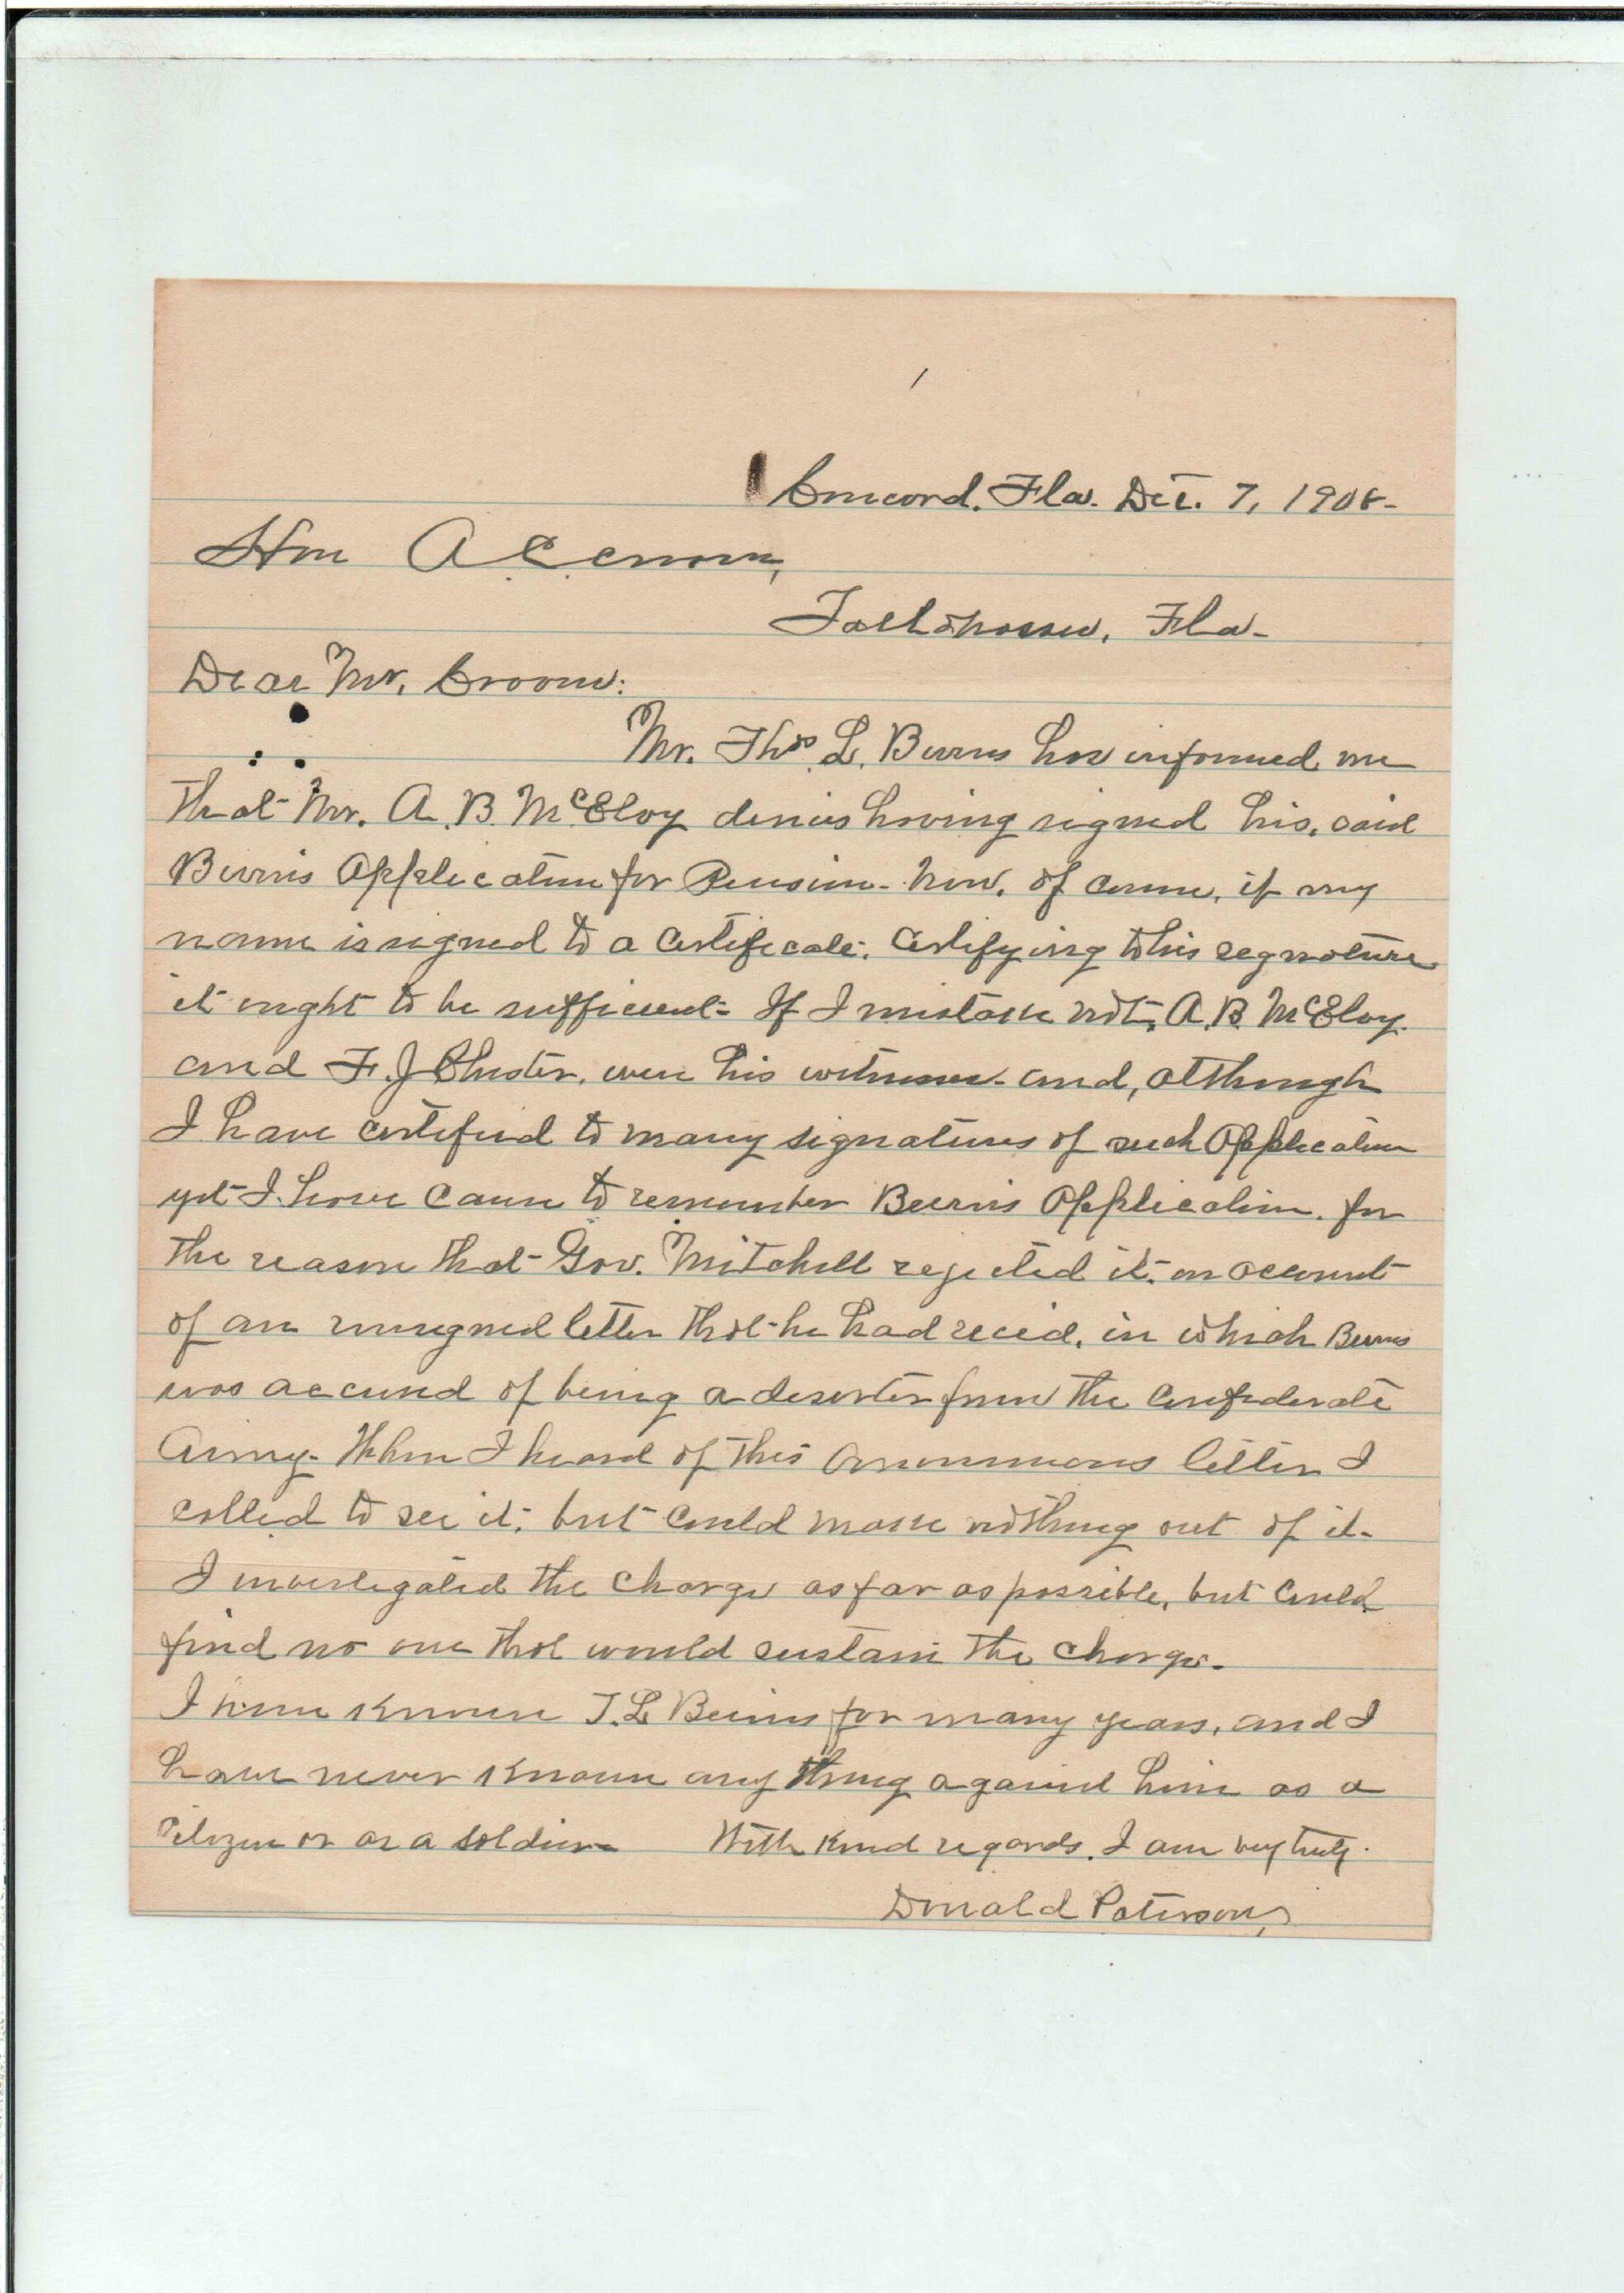 Concord. Fla. Dec. 7, 1908-
Hon A C Croom,
Tallahassee, Fla-
Dear Mr. Croom:
Mr. Thos L. Burns has informed me
that Mr. A. B. McEloy denies having signed his, said
Burns Application for Pension- Now, of course, if my
name is signed to a Certificate, Certifying to his signature
it ought to be sufficient- If I mistake not, A. B. McEloy
and F. J. Chester, were his witnesses- and, although
I have certified to many signatures of such Application
yet I have cause to remember Burns Application, for
the reason that Gov. Mitchell rejected it, on account
of an unsigned letter that he had recied, in which Burns
was accused of being a deserter from the Confederate
Army- When I heard of this letter I
called to see it, but could make nothing out of it-
I investigated the Charge as far as possible, but could
find no one that would sustain the Charge-
I have known T. L Burns for many years, and I
have never known any thing against him as a
Citizen or as a soldier- With kind regards, I am very truly.
Donald Paterson,